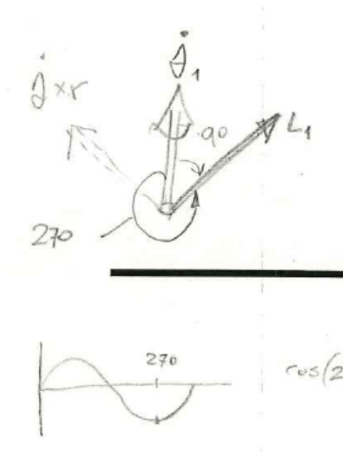 θ̇₁
θ̇×r
90
L₁
270
270
cos(2